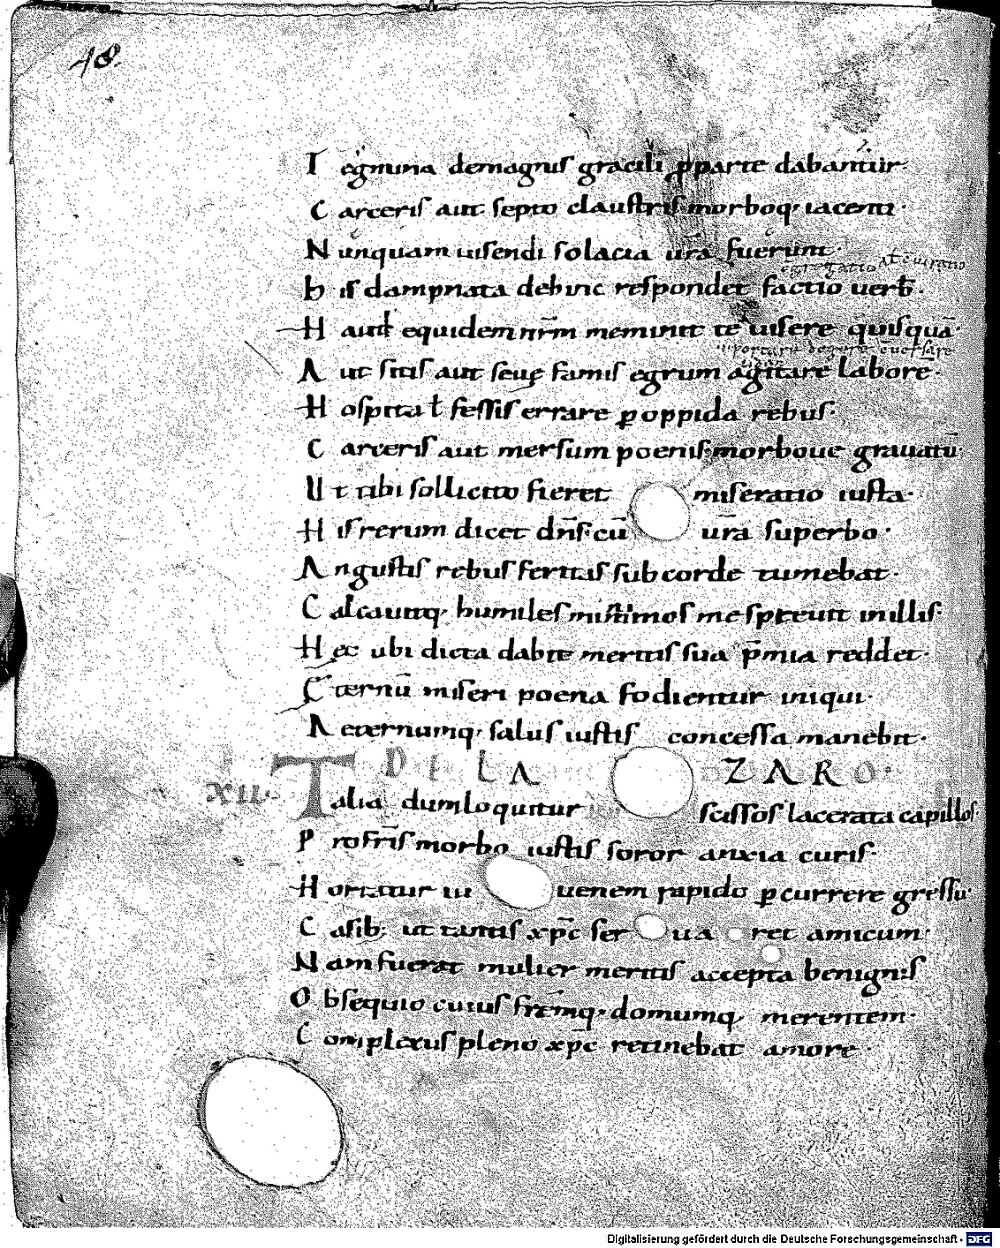 48.
T egmina demagnis gracili ꝑparte dabantur·
C arceris aut septo claustris morboq; iacenti·
N unquam uisendi solacia ur̄a fuerunt·
h is dampnata dehinc respondet factio uerƀ·
H aut equidem nr̄m meminit te uisere quisquā·
A ut sitis aut seuę famis egrum agitare labore·
H ospita ł fessis errare ꝑ oppida rebus·
C arceris aut mersum poenis morboue grauatū
U t tibi sollicito fieret miseratio iusta·
H is rerum dicet dn̄s· cū ur̄a superbo·
A ngustis rebus feritas sub corde tumebat·
C alcauitq; humiles mitissimos me spreuit in illis·
H ec ubi dicta dabit meritis sua p̄mia reddet·
Ę ternū miseri poena fodientur iniqui·
A eternumq; salus iustis concessa manebit·
D E LAZARO·
XII· Talia dum loquitur scissos lacerata capillos·
P ro fr̄is morbo iustis soror anxia curis·
H ortatur iuuenem rapido ꝑcurrere gressu·
C asib; ut tantis xp̄c seruaret amicum·
N am fuerat mulier meritis accepta benignis
O bsequio cuius fr̄emq; domumq; merentem·
C omplexus pleno xp̄c retinebat amore·
Digitalisierung gefördert durch die Deutsche Forschungsgemeinschaft - DFG